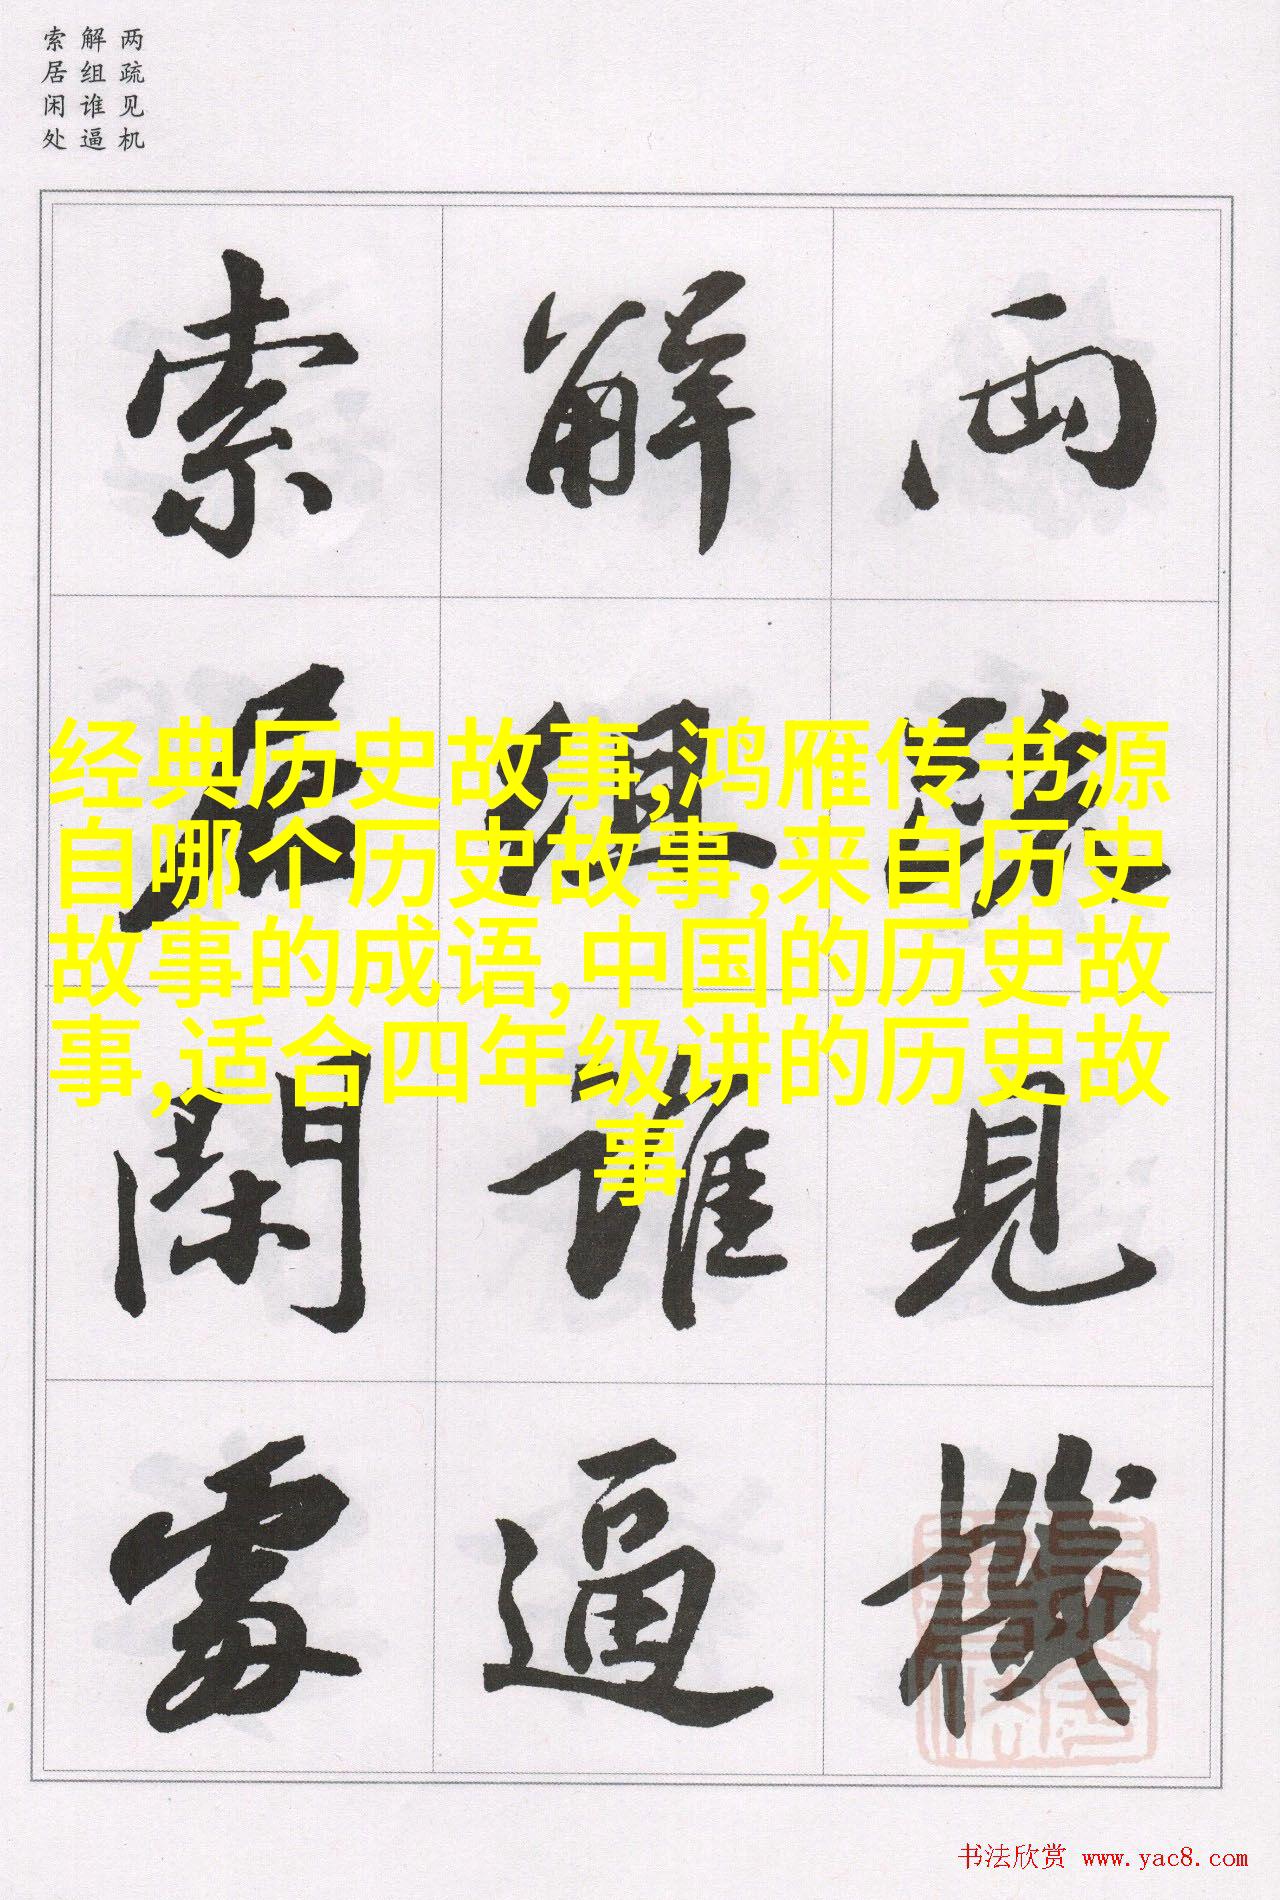 两疏见机
解组谁逼
索居闲处
两疏見機
解組誰逼
索居閑處
经典历史故事,鸿雁传书源
自哪个历史故事,来自历史
故事的成语,中国的历史故
事,适合四年级讲的历史故
事
书法欣赏 www.yac8.com